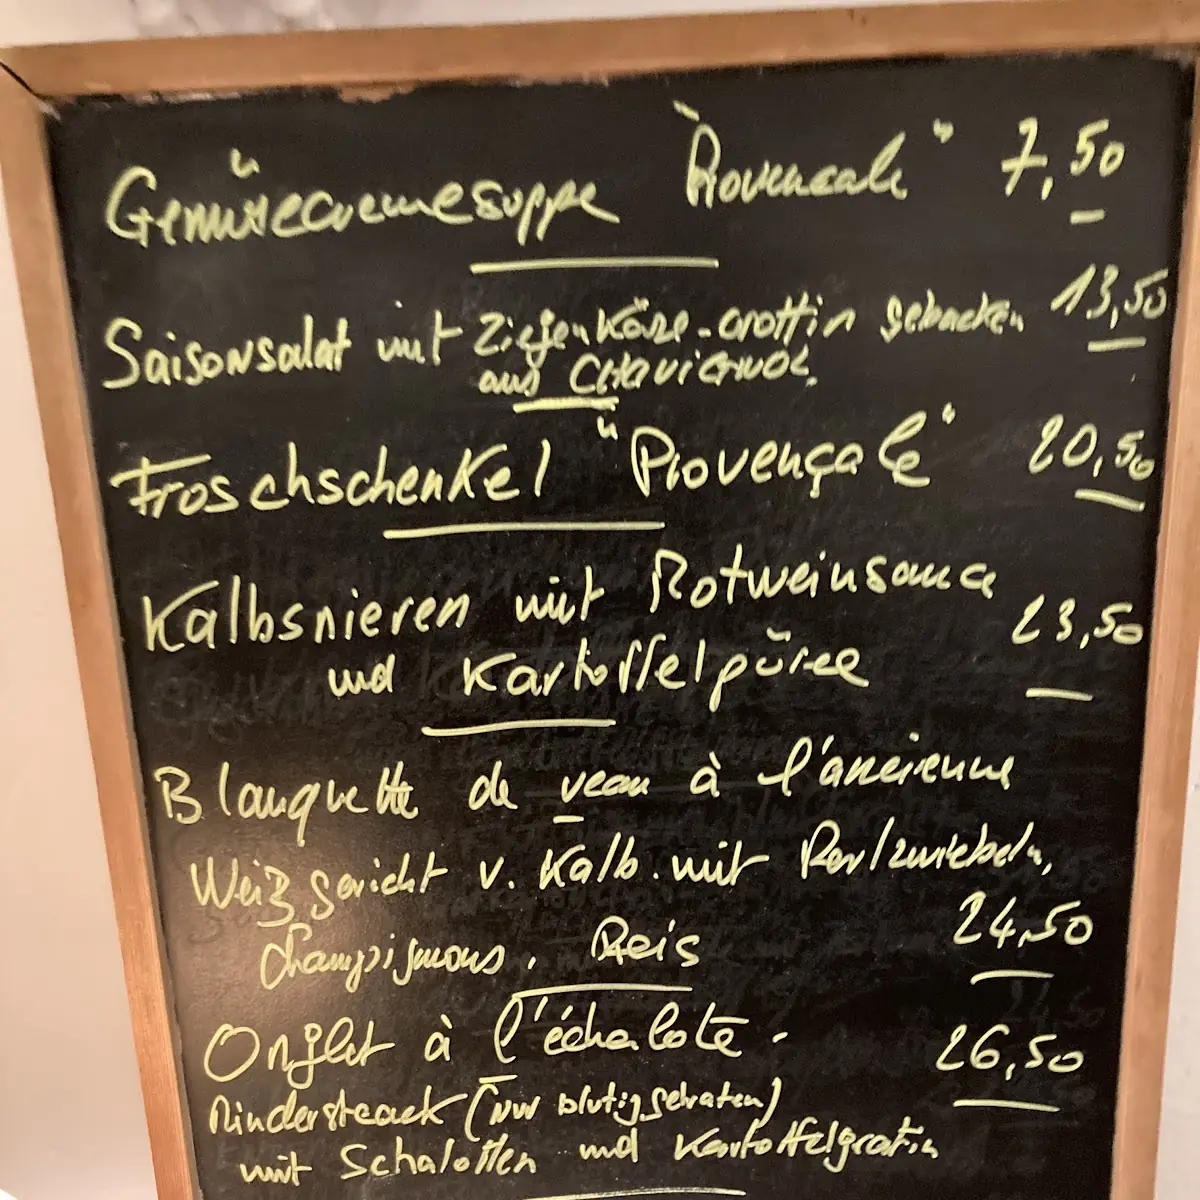 Gemüsecremesuppe "Provencale" 7,50
Saisonsalat mit Ziegenkäse-Crottin gebacken 13,50
aus Chavignol
Froschschenkel "Provençale" 20,50
Kalbsnieren mit Rotweinsauce
und Kartoffelpüree 23,50
Blanquette de veau à l'ancienne
Weißgericht v. Kalb. mit Perlzwiebeln,
Champignons, Reis 24,50
Onglet à l'échalote - 26,50
Rindersteack (nur blutig gebraten)
mit Schalotten und Kartoffelgratin